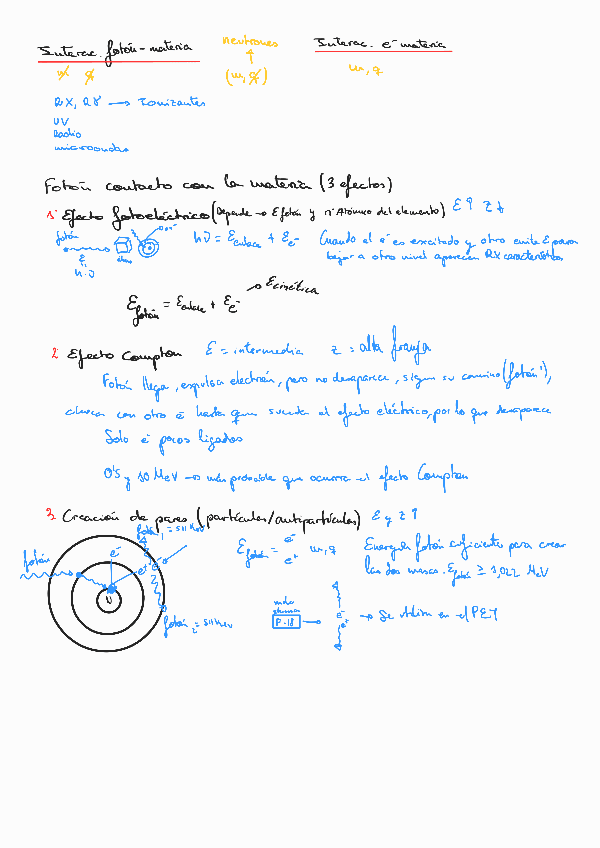 Interac. fotón-materia
neutrones
Interac. e⁻ materia
m q
(m, q)
m, q
RX, Rγ → Ionizantes
UV
Radio
microondas
Fotón contacto con la materia (3 efectos)
1. Efecto fotoeléctrico (Depende → E fotón y nº Atómico del elemento) E↑ Z↓
fotón
E
h·ν
hν = E enlace + E e⁻
Cuando el e⁻ es excitado y otro emite E para
bajar a otro nivel aparecen RX característicos
E fotón = E enlace + E e⁻
→ E cinética
2. Efecto Compton E = intermedia z = alta franja
Fotón llega, expulsa electrón, pero no desaparece, sigue su camino (fotón'),
choca con otro e⁻ hasta que suceda el efecto eléctrico, por lo que desaparece
Solo e⁻ pocos ligados
0'5 y 10 MeV → más probable que ocurra el efecto Compton
3. Creación de pares (partículas/antipartículas) E y z ↑
fotón 1 = 511 KeV
fotón
e⁻
e⁺
N
fotón 2 = 511 KeV
E fotón = e⁻ e⁺ m, q
Energía fotón suficiente para crear
las dos masas. E fotón ≥ 1,022 MeV
F-18
e⁻
e⁺
→ Se utiliza en el PET